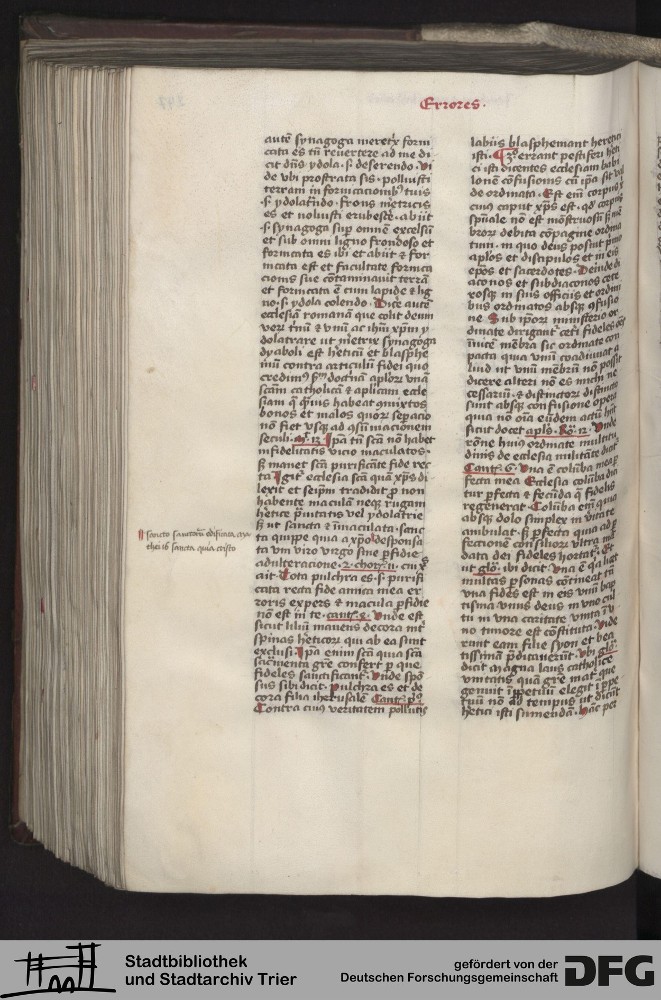 Errores.
autē synagoga meret̄x forni
cata es tū revertere ad me di
cit dn̄s ydola .s. deserendo. Vi
de vbi prostrata sis. polluisti
terram in fornicacionibꝰ tuis
.s. ydolat͛ndo. frons met͛icis
es et noluisti erubesc̄e. abiit
.s. synagoga suꝑ omnē excelsū
et sub omni ligno frondoso et
fornicata es ibi et abiit ⁊ for
nicata est et facultate fornica
cionis sue cōtaminauit terrā
et fornicata ē cum lapide ⁊ lig
no .s. ydola colendo. Dice autē
ecclesiā romanā que colit deum
veꝝ t͛nū ⁊ vnū ac ihm̄ xp̄m y
dolatrare ut met͛ix synagoga
dyaboli est het͛icū et blasphe
miū contra articulū fidei quo
credimꝰ sm̄ doct͛nā apl̄oꝝ vnā
scām catholicā ⁊ apl̄icam eccle
siam q̄ qͣmuis habeat ꝯmixtos
bonos et malos quoꝝ seꝑacio
non fiet vsqꝫ ad ꝯsūmacionem
seculi. mͭ. 13. Ip̄a tn̄ scā nō habet
infidelitatis vicio maculatos.
sꝫ manet scā purificāte fide rec
ta Igit͛ ecclesia scā quā xp̄s di
lexit et seip̄m tradidit ꝓ non
habente maculā neqꝫ rugam
hetice p͛uitatis vel ydolatrie
sꝫ ut sancta ⁊ īmaculata. sanc
ta quippe quia a xp̄o desponsa
ta vni viro virgo sine ꝑfidie
adulteracione. 2. choꝝ. 11. cui xͨ
ait. Tota pulchra es .s. purifi
cata recta fide amica mea er
roris expers ⁊ macula ꝑfidie
non est in te. cant̄. 4. Vnde est
sicut liliū manens decora int͛
spinas heticoꝝ qui ab ea sunt
exclusi. Ip̄a enim scā quia scā
sac͛menta gr̄e confert ꝑ que
fideles sanctificant͛. Vnde spō
sus sibi dicit. Pulchra es et de
cora filia iherusalē Cant̄. pͦ.
Contra cuiꝰ veritatem pollutis
Iscōcto
chei ih̄ sancta quia cristo
labiis blasphemant heretici
isti. ¶ 3ͦ. errant pestiferi heti
ci isti dicentes ecclesiam babi
lonē cōfusionis cū ip̄a sit
de ordinata. Est em̄ corpus xͥ
cuiꝰ caput xp̄s est. qd͛ corpus
sp̄uale nō est mōstruosū sꝫ mē
broꝝ debita cōpagine ordina
tum. in quo deus posuit p͛mū
apl̄os et discipulos et in eis
ep̄os et sacerdotes. Deinde di
aconos et subdiaconos cete
rosqꝫ in suis officiis et ordini
bus ordinatos absqꝫ ꝯfusio
ne. Sub ip̄oꝝ ministerio or
dinate dirigant͛ cet͛i fideles
inuicē mēbra sic ordinate con
pacta quia vnū coadiuuat a
liud ut vnū mēbrū nō possit
dicere alteri nō es michi ne
cessariū. ⁊ distinctoꝝ
sunt absqꝫ confusione opera
quia nō oīa eūdem actū hn̄t
sicut docet apl̄s. Ro. 12. Vnde
rōne huiꝰ ordinate multitu
dinis de ecclesia militāte dicit͛
Cant̄. 6. Vna ē colūba mea ꝑ
fecta mea Ecclesia colūba dici
tur ꝑfecta ⁊ fecūda q̄ fideles
regenerat. Colūba em̄ quia
absqꝫ dolo simplex in vītate
ambulat. sꝫ ꝑfecta quia ad ꝑ
fectionē consilioꝝ vltra mā
data dei fideles hortat͛. Et
ut glo. ibi dicit Vna ē q̄ licet
multas ꝑsonas cōtineat tn̄
vna fides est in eis vnū bap
tisma vnus deus in vno cul
tu in vna caritate vnita ī v
no timore est cōstituta. Vide
runt eam filie syon et bea
tissimā p͛dicauerūt. Vbi glo.
dicit Magna laus catholice
vnitatis quā gr̄e mat͛ que
genuit īꝑpetuū elegit ī ꝑpe
tuū nō ad tempus ut dicūt
hetici isti sumendā. Hāc per
Stadtbibliothek
und Stadtarchiv Trier
gefördert von der
Deutschen Forschungsgemeinschaft
DFG